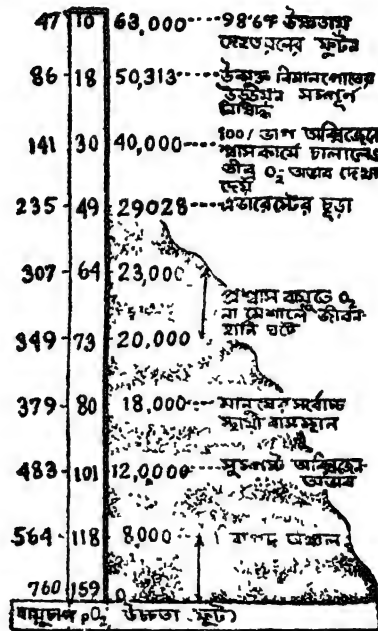 47 10 63,000 98.6°F উষ্ণতায়
দেহতরলের ফুটন
86 18 50,313 উন্মুক্ত বিমানপোতের
উড্ডয়ন সম্পূর্ণ
নিষিদ্ধ
141 30 40,000 100% ভাগ অক্সিজেনে
শ্বাসকার্য চালালেও
তীব্র O₂ অভাব দেখা
দেয়
235 49 29028 এভারেস্টের চূড়া
307 64 23,000
প্রশ্বাস বায়ুতে O₂
না মেশালে জীবন-
হানি ঘটে
349 73 20,000
379 80 18,000 মানুষের সর্বোচ্চ
স্থায়ী বাসস্থান
483 101 12,0000 সুস্পষ্ট অক্সিজেন-
অভাব
564 118 8,000
760 159 0
বায়ুচাপ pO₂ উচ্চতা (ফুট)